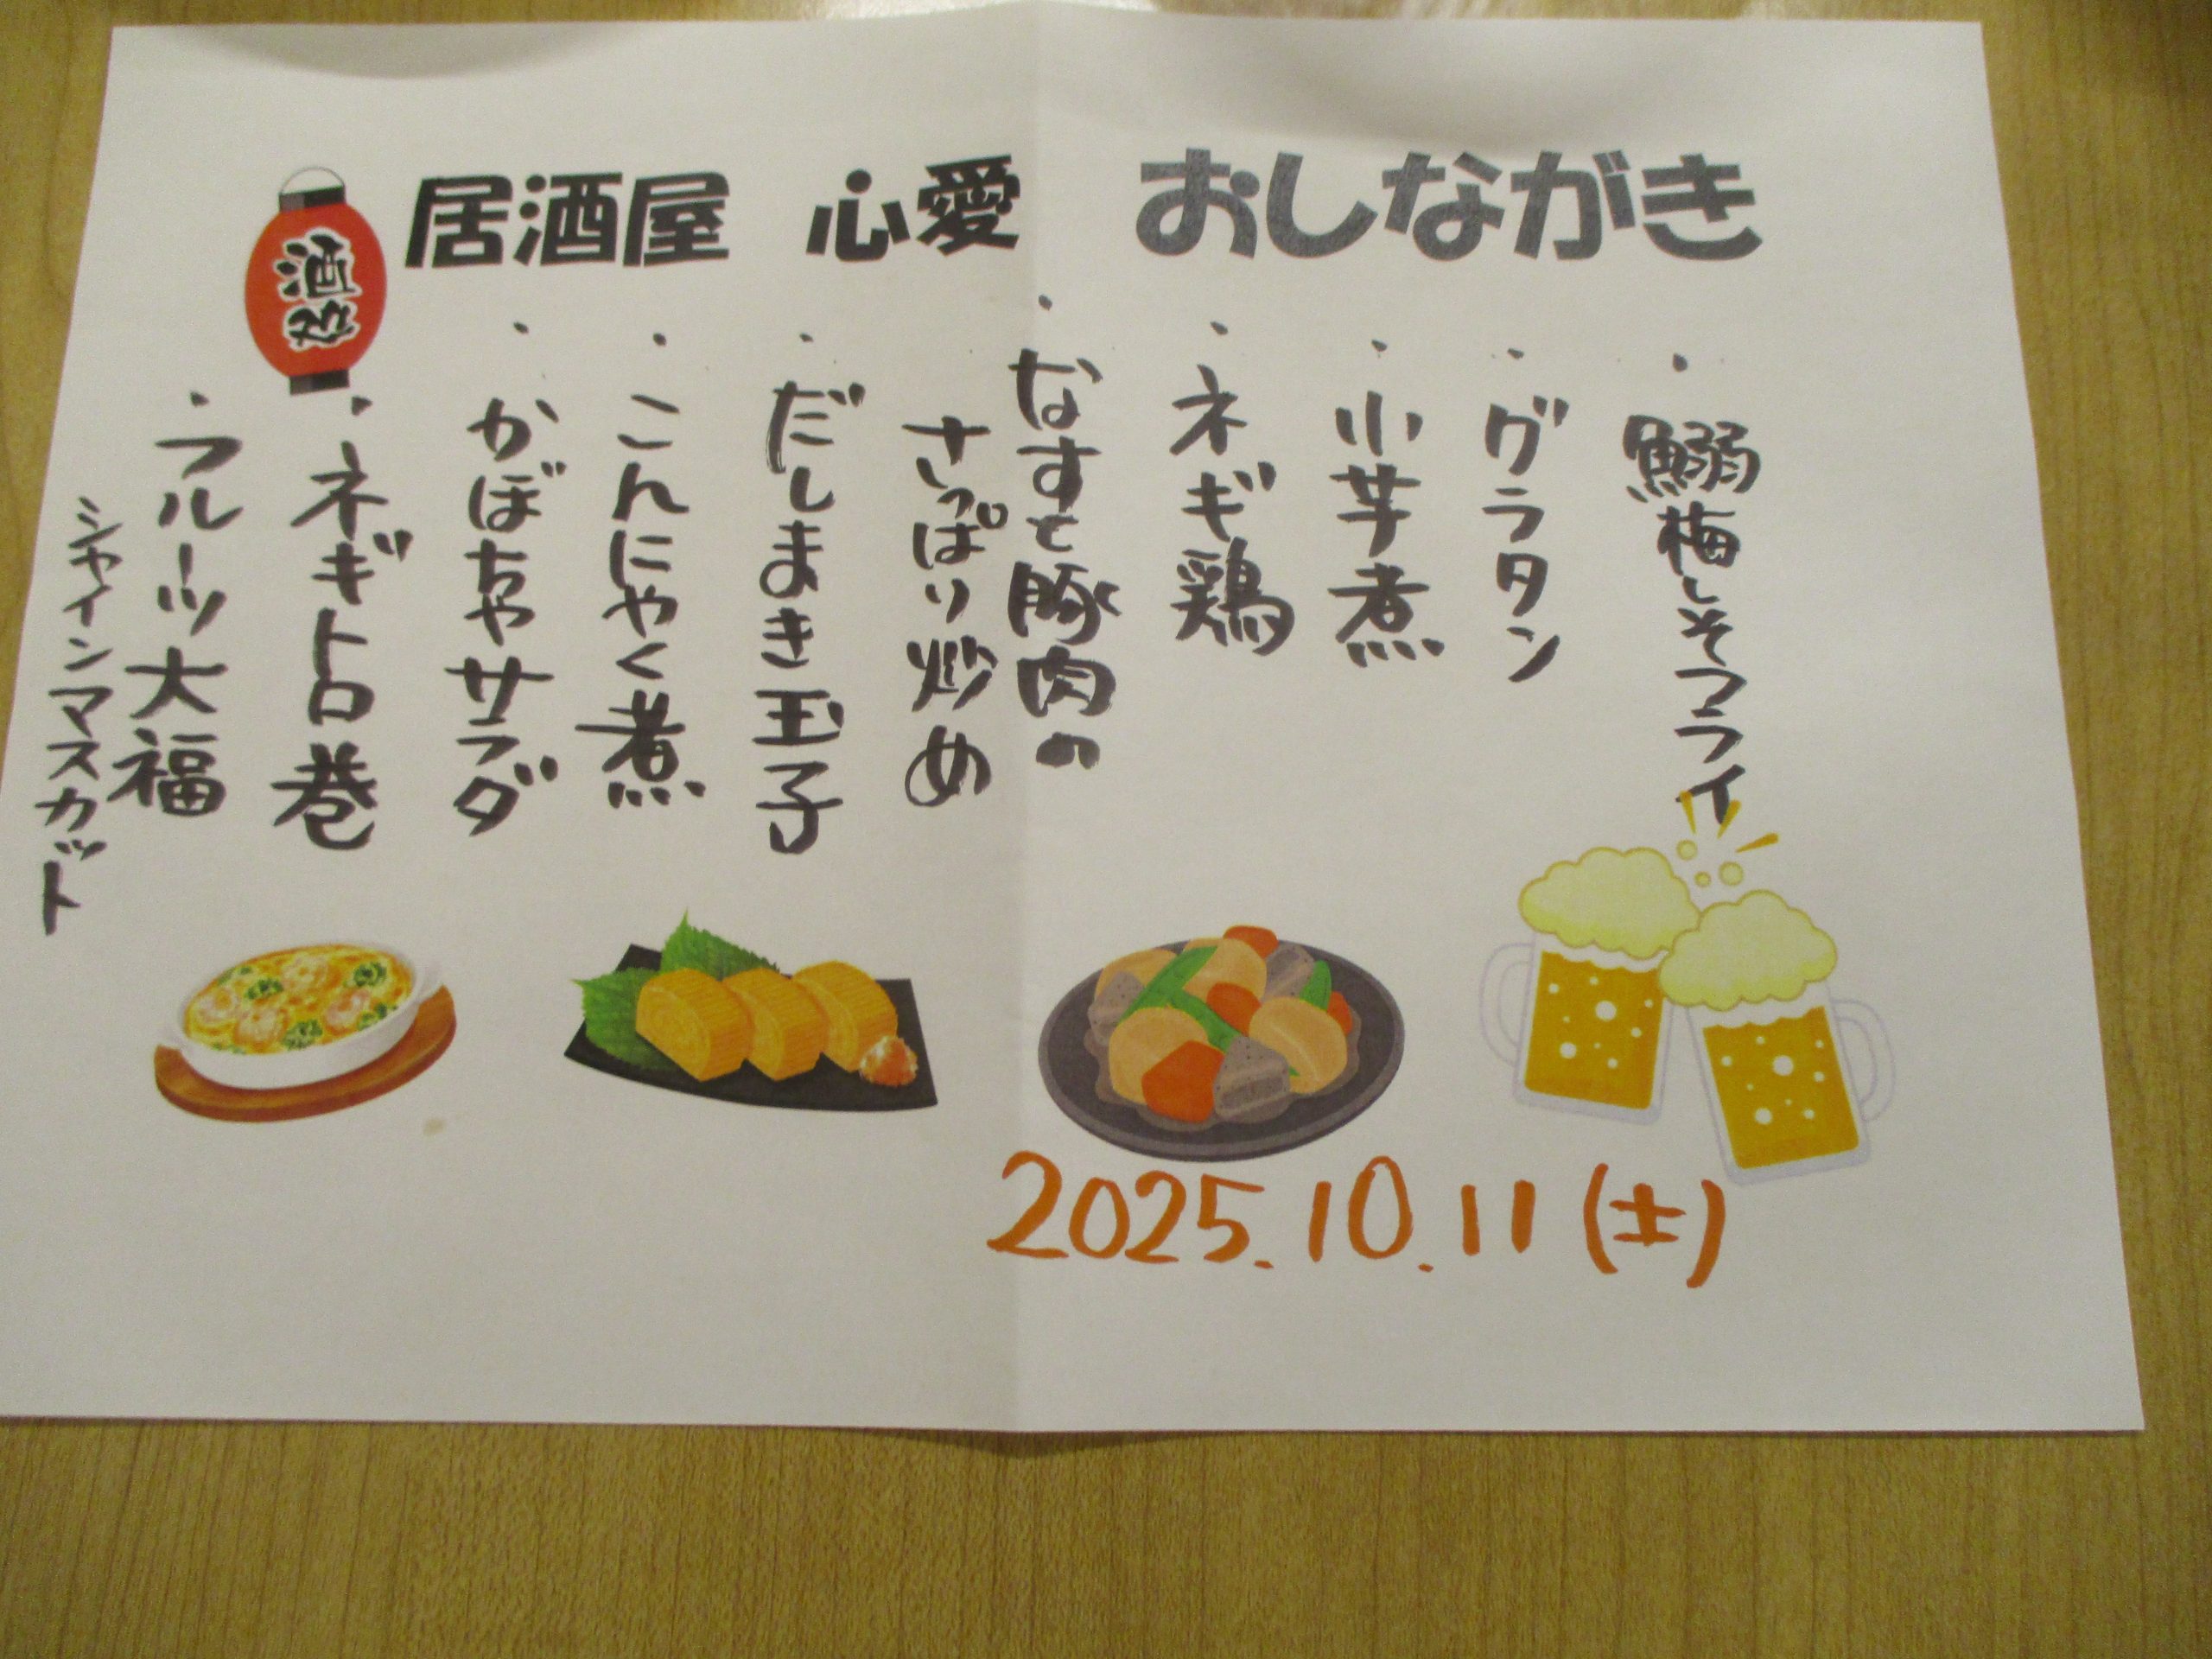 居酒屋 心愛 おしながき
酒処
・鰯梅しそフライ
・グラタン
・小芋煮
・ネギ鶏
・なすと豚肉の
さっぱり炒め
・だしまき玉子
・こんにゃく煮
・かぼちゃサラダ
・ネギトロ巻
・フルーツ大福
シャインマスカット
2025.10.11(土)